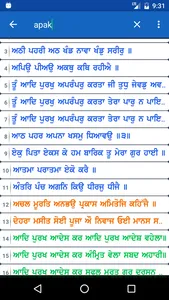 9:31
apak
3 ਅਠੀ ਪਹਰੀ ਅਠ ਖੰਡ ਨਾਵਾ ਖੰਡੁ ਸਰੀਰੁ ॥
4 ਅਪਿਉ ਪੀਅਉ ਅਕਥੁ ਕਥਿ ਰਹੀਐ ॥
5 ਤੂੰ ਆਦਿ ਪੁਰਖੁ ਅਪਰੰਪਰੁ ਕਰਤਾ ਜੀ ਤੁਧੁ ਜੇਵਡੁ ਅਵ...
6 ਤੂੰ ਆਦਿ ਪੁਰਖੁ ਅਪਰੰਪਰੁ ਕਰਤਾ ਤੇਰਾ ਪਾਰੁ ਨ ਪਾਇ...
7 ਤੂੰ ਆਦਿ ਪੁਰਖੁ ਅਪਰੰਪਰੁ ਕਰਤਾ ਤੇਰਾ ਪਾਰੁ ਨ ਪਾਇ...
8 ਆਠ ਪਹਰ ਅਪਨਾ ਖਸਮੁ ਧਿਆਵਉ ॥੩॥
9 ਏਕੁ ਪਿਤਾ ਏਕਸ ਕੇ ਹਮ ਬਾਰਿਕ ਤੂ ਮੇਰਾ ਗੁਰ ਹਾਈ ॥
10 ਆਤਮਾ ਪਰਾਤਮਾ ਏਕੋ ਕਰੈ ॥
11 ਅੰਤਰਿ ਪੰਚ ਅਗਨਿ ਕਿਉ ਧੀਰਜੁ ਧੀਜੈ ॥
12 ਅਚਲ ਮੂਰਤਿ ਅਨਭਉ ਪ੍ਰਕਾਸ ਅਮਿਤੋਜਿ ਕਹਿੱਜੈ ॥
13 ਦੇਹਰਾ ਮਸੀਤ ਸੋਈ ਪੂਜਾ ਔ ਨਿਵਾਜ ਓਈ ਮਾਨਸ ਸ...
14 ਆਦਿ ਪੁਰਖ ਆਦੇਸ ਕਰ ਆਦਿ ਪੁਰਖ ਆਦੇਸ ਵਹੇਲਾ॥
15 ਆਦਿ ਪੁਰਖ ਆਦੇਸ ਕਰ ਅੰਮ੍ਰਿਤ ਵੇਲਾ ਸਬਦ ਅਹਾਰੀ॥
16 ਆਦਿ ਪੁਰਖ ਆਦੇਸ ਕਰ ਸਫਲ ਮੂਰਤ ਗੁਰ ਦਰਸਨ